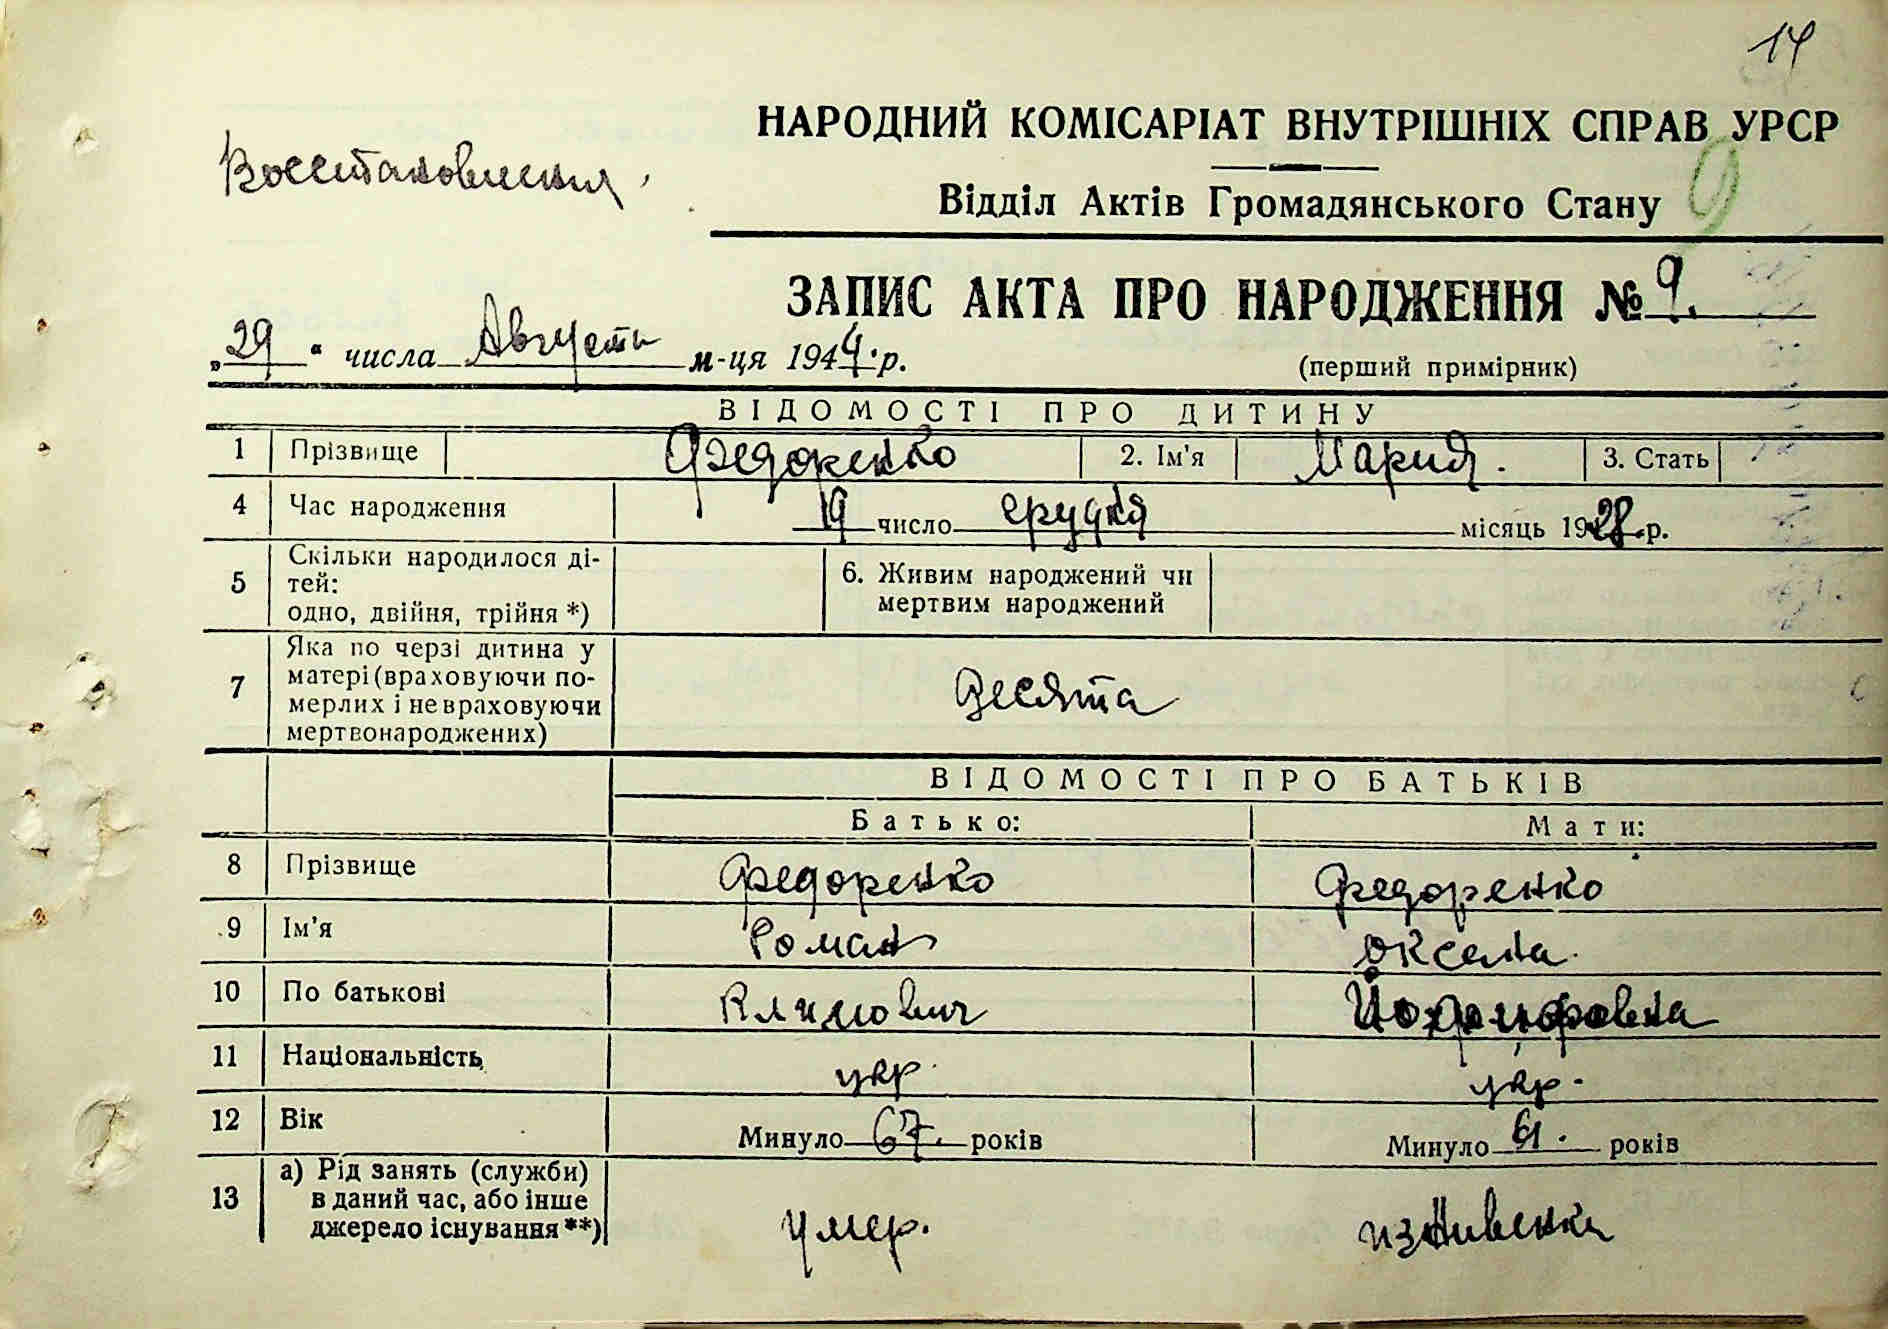 14
НАРОДНИЙ КОМІСАРІАТ ВНУТРІШНІХ СПРАВ УРСР
Восстановления
9
Відділ Актів Громадянського Стану
ЗАПИС АКТА ПРО НАРОДЖЕННЯ № 9.
„29“ числа Августа м-ця 1944.р.
(перший примірник)
ВІДОМОСТІ ПРО ДИТИНУ
1 Прізвище Федоренко 2. Ім'я Мария. 3. Стать
4 Час народження 19 число грудня місяць 1928.р.
5 Скільки народилося ді-
тей:
одно, двійня, трійня *)
6. Живим народжений чи
мертвим народжений
7 Яка по черзі дитина у
матері (враховуючи по-
мерлих і не враховуючи
мертвонароджених)
Десята
ВІДОМОСТІ ПРО БАТЬКІВ
Батько: Мати:
8 Прізвище Федоренко Федоренко
9 Ім'я Роман Оксана
10 По батькові Климович
11 Національність укр. укр.
12 Вік Минуло 67. років Минуло 61. років
13 а) Рід занять (служби)
в даний час, або інше
джерело існування **)
умер. иждивенка